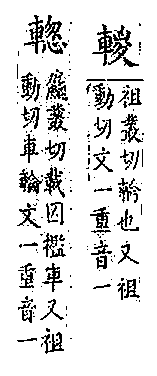 祖叢切軨也又祖
動切文一重音一
䡯
麤叢切載囚檻車又祖
動切車輪文一重音一